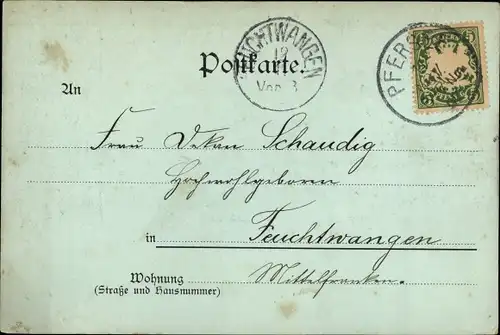 FEUCHTWANGEN
12
Vor. 3
Postkarte.
PFERS
5 5
An
Frau Dekan Schaudig
Hochwohlgeboren
in Feuchtwangen
Mittelfranken.
Wohnung
(Straße und Hausnummer)